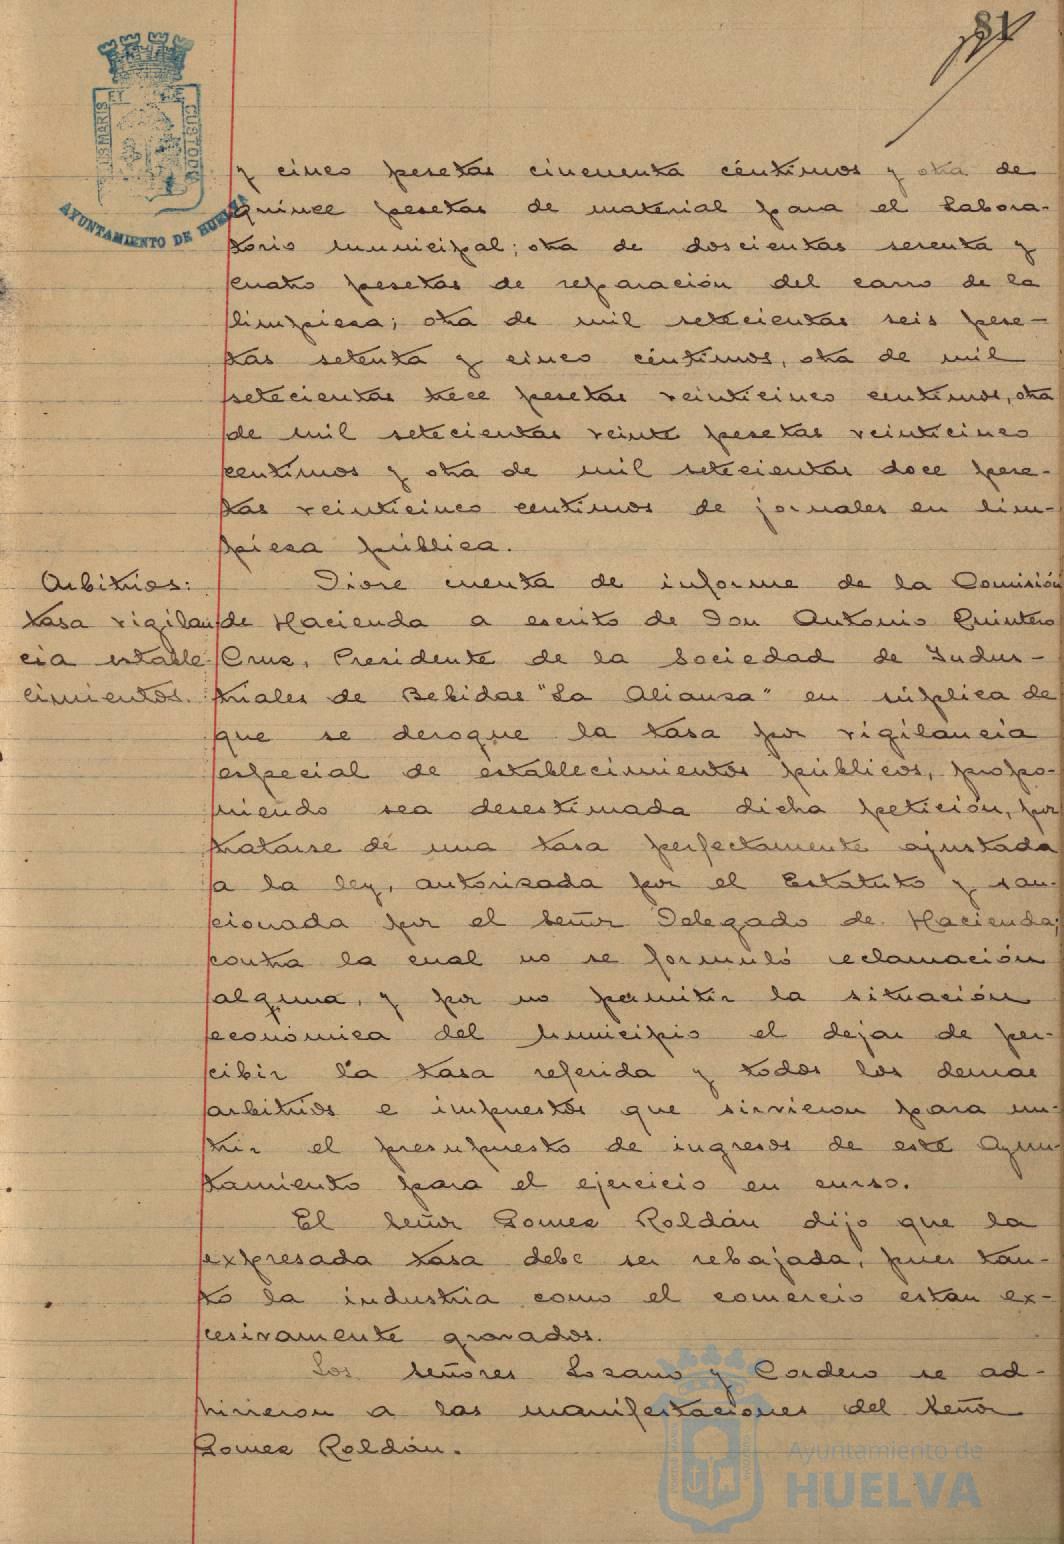 81
PORTUS MARIS ET TERRE CUSTODIA
AYUNTAMIENTO DE HUELVA
y cinco pesetas cincuenta céntimos y otra de
quince pesetas de material para el Labora-
torio municipal; otra de doscientas setenta y
cuatro pesetas de reparación del carro de la
limpieza; otra de mil setecientas seis pese-
tas setenta y cinco céntimos, otra de mil
setecientas trece pesetas veinticinco centimos, otra
de mil setecientas veinte pesetas veinticinco
centimos y otra de mil setecientas doce pese-
tas veinticinco centimos de jornales en lim-
pieza pública.
Arbitrios:
tasa vigilan
cia estable-
cimientos.
Diose cuenta de informe de la Comisión
de Hacienda a escrito de Don Antonio Quintero
Cruz, Presidente de la Sociedad de Indus-
triales de Bebidas "La Alianza" en súplica de
que se derogue la tasa por vigilancia
especial de establecimientos públicos, propo-
niendo sea desestimada dicha petición, por
tratarse de una tasa perfectamente ajustada
a la ley, autorizada por el Estatuto y san-
cionada por el Señor Delegado de Hacienda;
contra la cual no se formuló reclamación
alguna, y por no permitir la situación
económica del Municipio el dejar de per-
cibir la tasa referida y todos los demas
arbitrios e impuestos que sirvieron para nu-
trir el presupuesto de ingresos de este Ayun-
tamiento para el ejercicio en curso.
El Señor Gomez Roldán dijo que la
expresada tasa debe ser rebajada, pues tan-
to la industria como el comercio estan ex-
cesivamente gravados.
Los señores Lozano y Cordero se ad-
hirieron a las manifestaciones del Señor
Gomez Roldán.
Ayuntamiento de
HUELVA